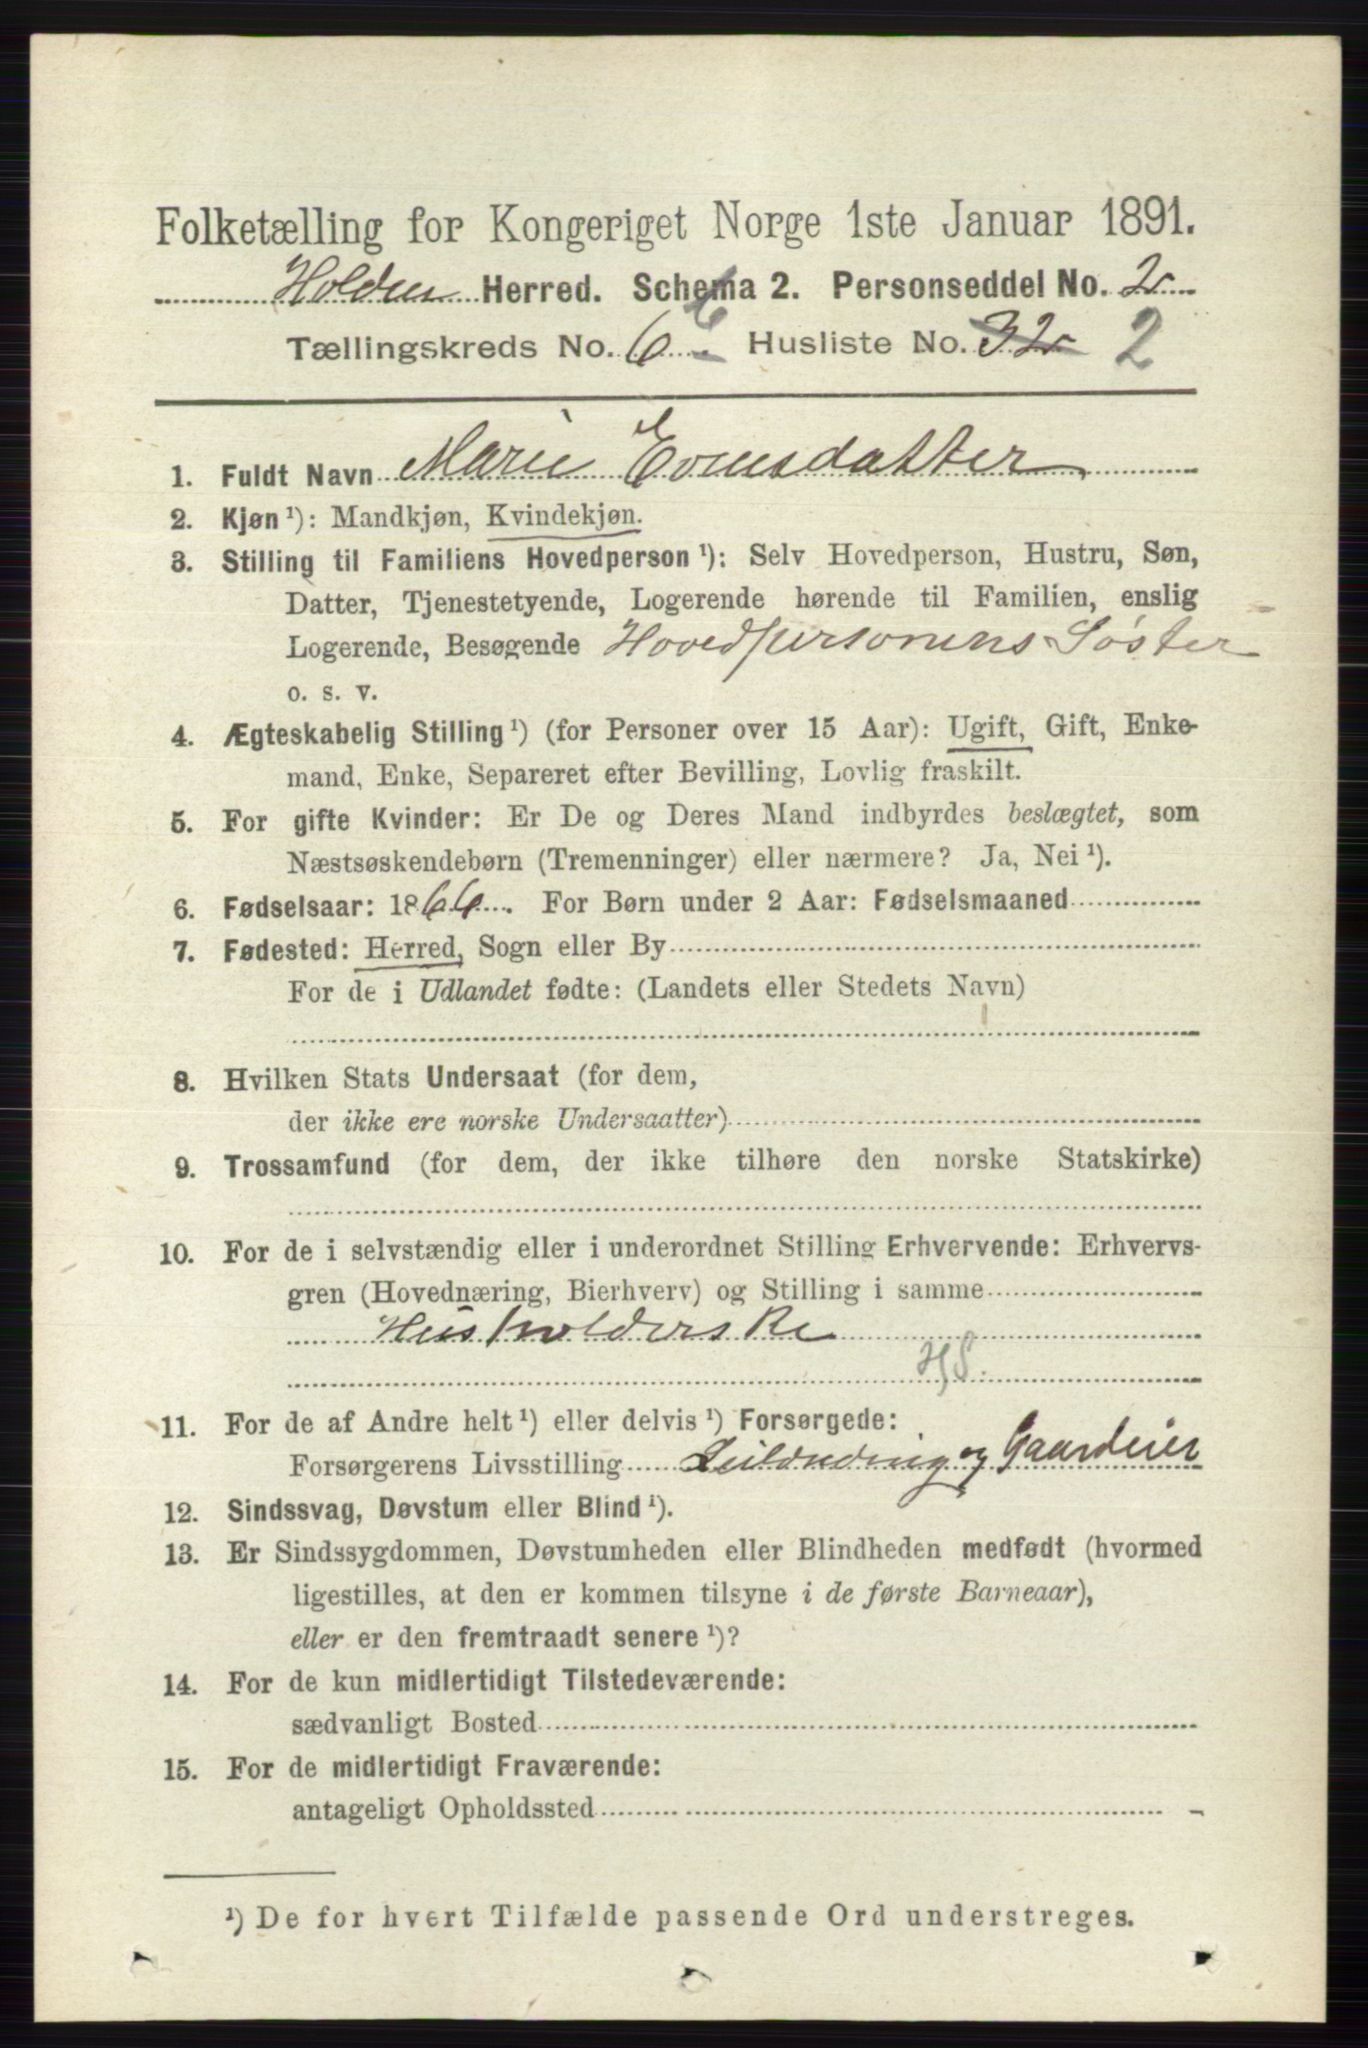 Folketælling for Kongeriget Norge 1ste Januar 1891.
Holden Herred. Schema 2. Personseddel No. 2
Tællingskreds No. 6 6 Husliste No. 32 2
1. Fuldt Navn Marie Evensdatter
2. Kjøn ¹): Mandkjøn, Kvindekjøn.
3. Stilling til Familiens Hovedperson ¹): Selv Hovedperson, Hustru, Søn,
Datter, Tjenestetyende, Logerende hørende til Familien, enslig
Logerende, Besøgende Hovedpersonens Søster
o. s. v.
4. Ægteskabelig Stilling ¹) (for Personer over 15 Aar): Ugift, Gift, Enke-
mand, Enke, Separeret efter Bevilling, Lovlig fraskilt.
5. For gifte Kvinder: Er De og Deres Mand indbyrdes beslægtet, som
Næstsøskendebørn (Tremenninger) eller nærmere? Ja, Nei ¹).
6. Fødselsaar: 1866. For Børn under 2 Aar: Fødselsmaaned
7. Fødested: Herred, Sogn eller By
For de i Udlandet fødte: (Landets eller Stedets Navn)
8. Hvilken Stats Undersaat (for dem,
der ikke ere norske Undersaatter)
9. Trossamfund (for dem, der ikke tilhøre den norske Statskirke)
10. For de i selvstændig eller i underordnet Stilling Erhvervende: Erhvervs-
gren (Hovednæring, Bierhverv) og Stilling i samme
Husholderske
HS.
11. For de af Andre helt ¹) eller delvis ¹) Forsørgede:
Forsørgerens Livsstilling og Gaardeier
12. Sindssvag, Døvstum eller Blind ¹).
13. Er Sindssygdommen, Døvstumheden eller Blindheden medfødt (hvormed
ligestilles, at den er kommen tilsyne i de første Barneaar),
eller er den fremtraadt senere ¹)?
14. For de kun midlertidigt Tilstedeværende:
sædvanligt Bosted
15. For de midlertidigt Fraværende:
antageligt Opholdssted
¹) De for hvert Tilfælde passende Ord understreges.